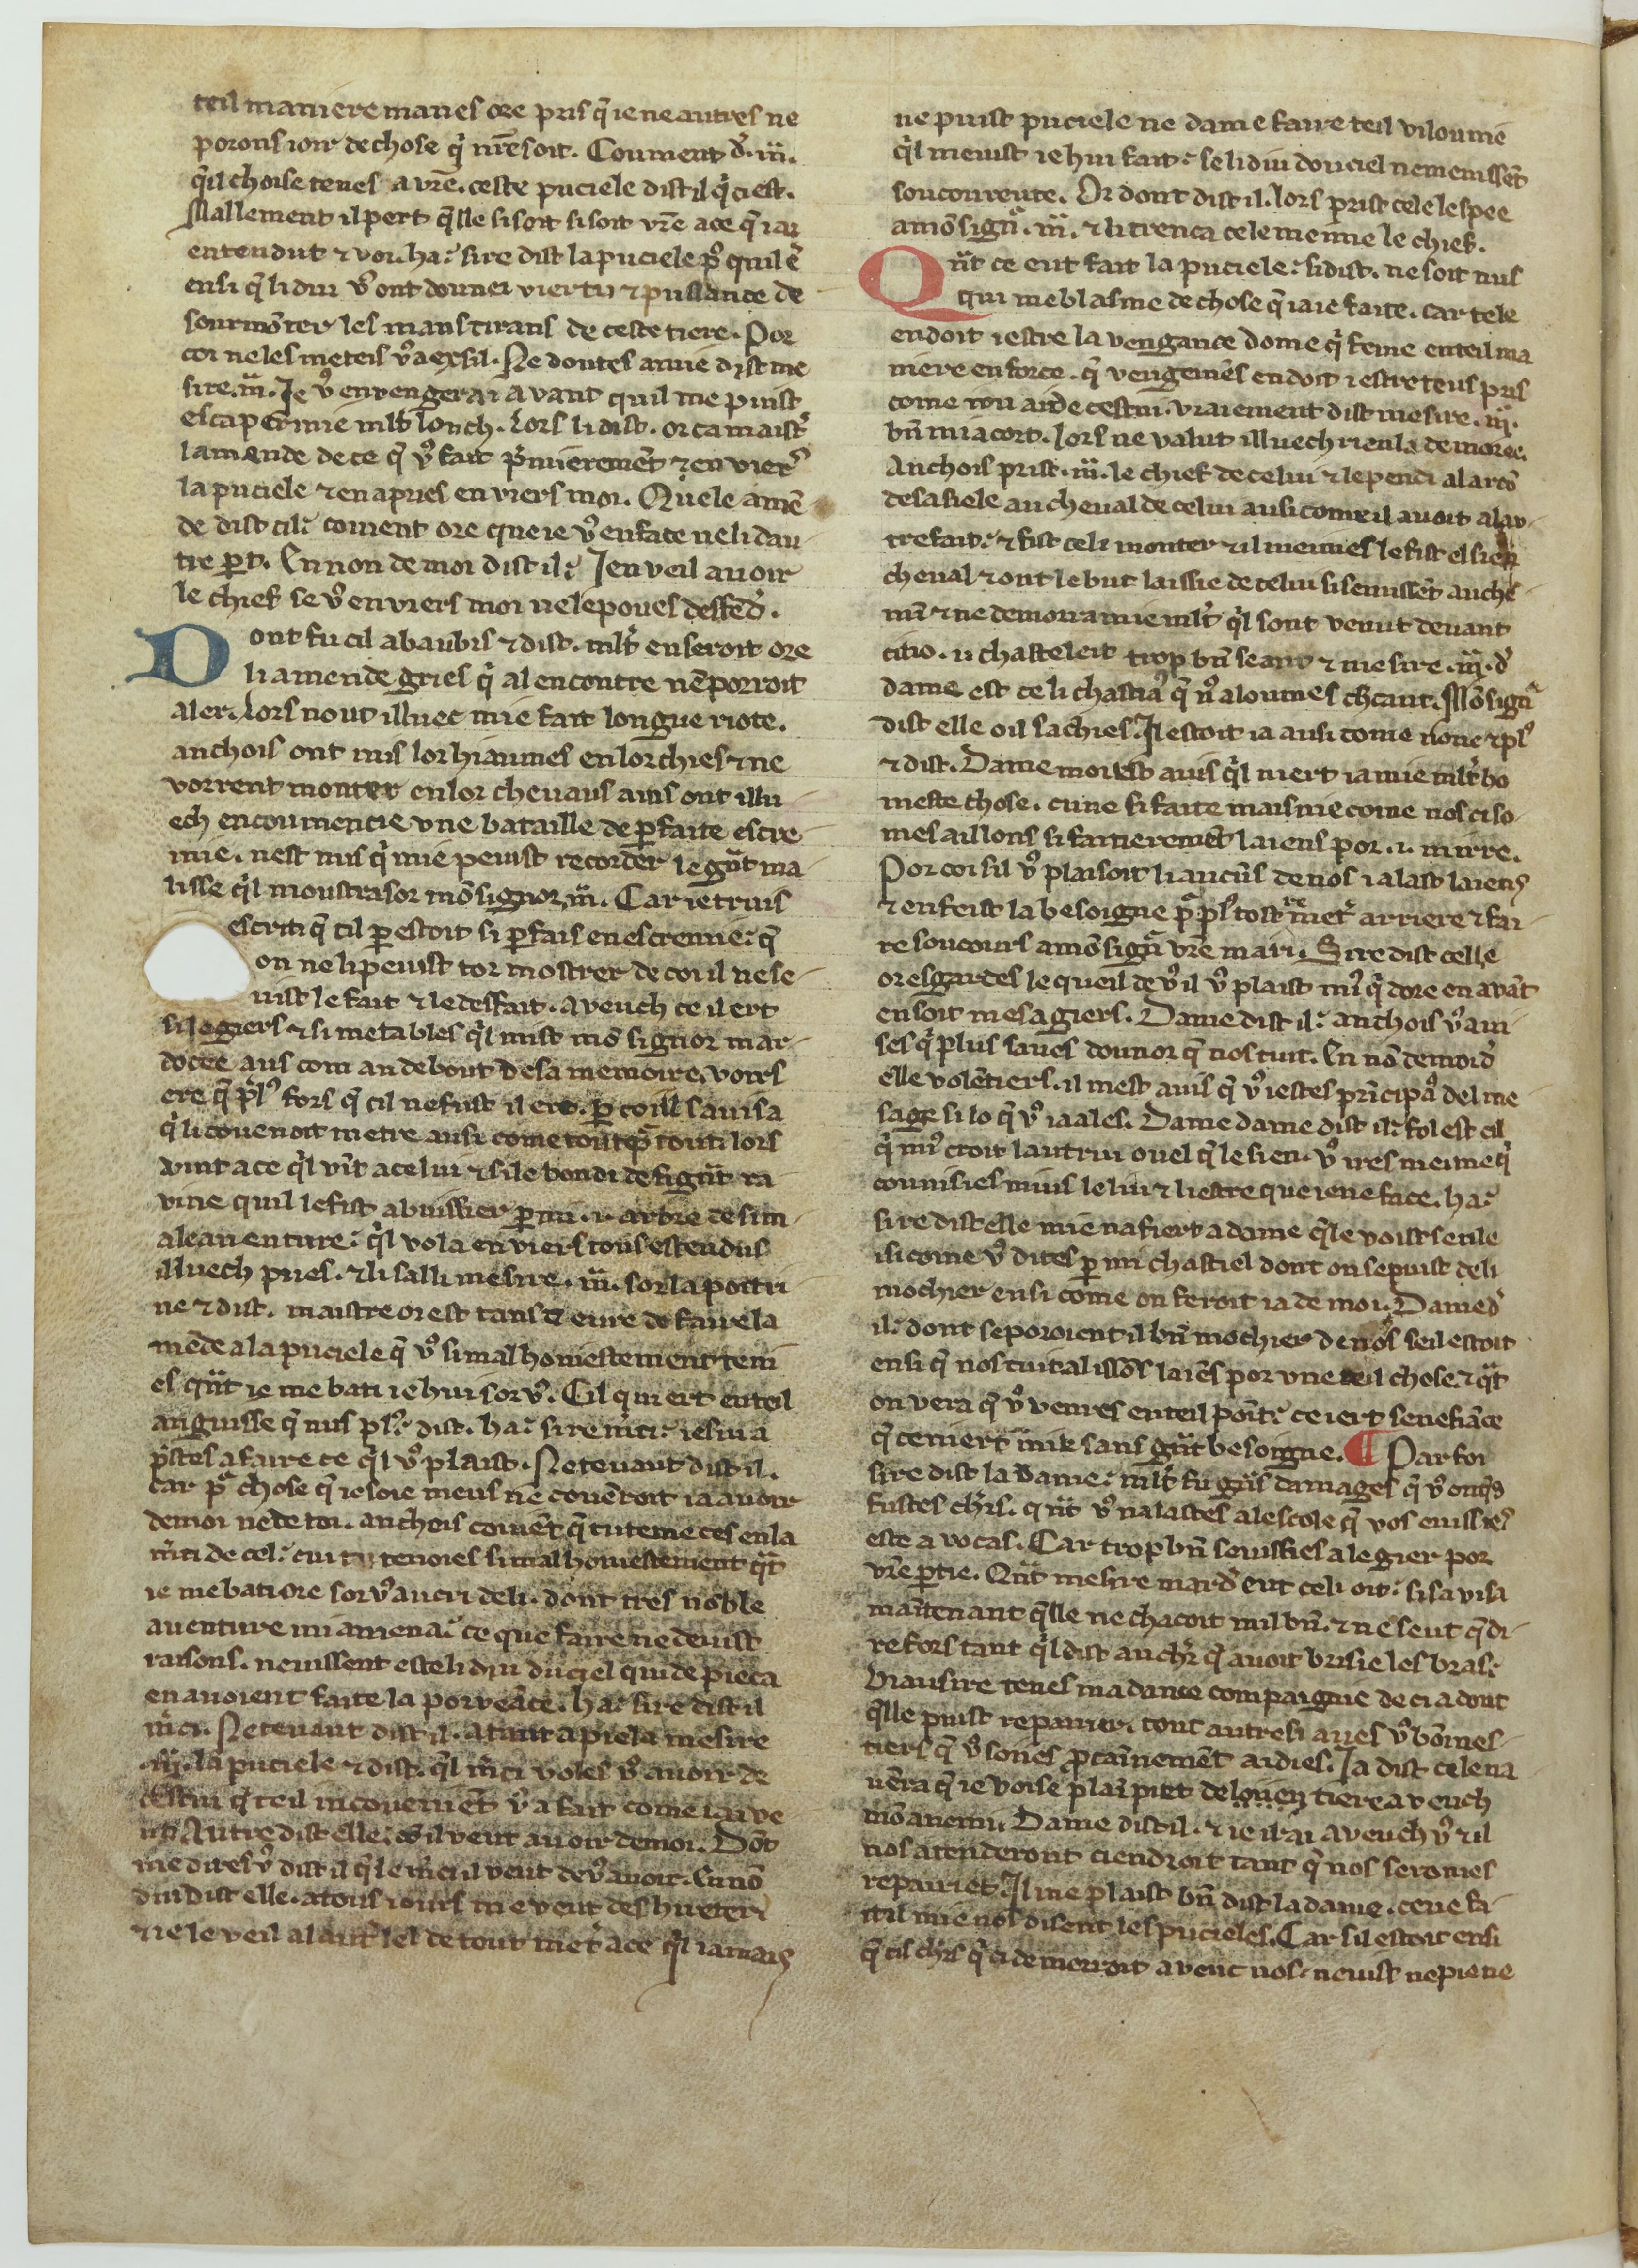 teil maniere manes ore pris q̄ ie ne autres ne
porons ioir de chose q̇ nr̄e soit. Coument d̓. m̈.
q̄il choise tenes a vr̄e. ceste puciele dist il q̇ ci est.
Mallement il pert q̄lle si soit si soit vr̄e ace q̄ iai
entendut ⁊ voi. ha: sire dist la puciele p̲ꝰ quil ē
ensi q̄ li diu vꝰ ont donnei viertu ⁊ puissance de
sourmōter les maus tirans de ceste tiere. Por
coi ne les meteis vꝰ a exsil. Ne doutes amie dist me
sire. m̈. Je vꝰ en vengerai avant quil me puist
escaper mie mlt̄ lonch. Lors li dist. or ca maistr̄
lamende de ce q̄ vꝰ fait p̓mieremēt ⁊ en vierꝰ
la puciele ⁊ en apries en viers moi. Quele amē
de dist cil: coment ore que ie vꝰ en face ne li dau
tre p̲t. En non de moi dist il: Jen veil avoir
le chief se vꝰ en viers moi ne le poues deffēd̓.
Dont fu cil abaubis ⁊ dist. mlt̄ en seroit ore
li amende gries q̇ al encontre nē porroit
aler. Lors nout illuec mie fait longue riote.
anchois ont mis lor hiaumes en lor chies ⁊ ne
vorrent monter en lor chevaus ains ont illu
ech encoumencie une bataille de p̲faite escre
mie. nest nus q̇ mie peuist recorder le grāt ma
lisse q̇l moustra sor mōsignor. m̈. Car ie truis
escrit q̄ cil p̲ estoit si p̲fais en escremie: q̄
on ne li peuist tor mostrer de coi il ne se
uist le fait ⁊ le deffait. aveuch ce il ert
si legiers ⁊ si metables q̇l mist mō signor mar
docee aus com au debout de sa memoire. voirs
ere q̄ pꝰl fors q̄ cil ne fust il ert. p̲ coi il savisa
q̇ li couenoit metre ausi come tout p̲ tout lors
vint ace q̇l vīt a celui ⁊ si le bondi de si grāt ra
vine quil le fist abuissier p̲mi .i. arbre de sim
ale aventure: q̇l vola en viers tous estendus
illuech pries. ⁊ li salli mesire. m̈. sor la poitri
ne ⁊ dist. maistre or est tans ⁊ eure de faire la
mēde a la puciele q̄ vꝰ si malhonestement teni
es qn̄t ie me bati iehui sor vꝰ. Cil qui ert en teil
anguisse q̄ nus plꝰ: dist. ha: sire m̄ci: ie sui a
p̓stes a faire ce q̇l vꝰ plaist. Ne tenant dist il.
car p̲ chose q̄ ie soie meus ne couēroit ia avoir
de moi ne de toi. anchois couiēt q̄ tu te meces en la
m̄ci de cel: cui tu tenoies si malhonestement qn̄t
ie me bati ore sor vꝰ au cri deli. dont tres noble
aventure mi amena: ce que faire ne deuist
raisons. neuissent esteli diu du ciel qui de pieca
en avoient faite la porveāce. ha: sire dist il
m̄ci. Ne tenant dist il. a tant apiela mesire
.m̈. la puciele ⁊ dist. q̄l m̄ci voles vꝰ avoir de
cestui q̇ teil incoveniēt vꝰ a fait come iai ve
ut. Autre dist elle: cō il veut avoir de moi. Dōt
me dites vꝰ dist il q̄le m̄ci il veut de vꝰ avoir. En nō
diu dist elle. a tous iours me veut deshireter
⁊ ie le veil al autr̄ lel de tout metr̄ ace q̇l iamais
ne puist puciele ne dame faire teil viloumie
q̇l meuist iehui fait: se li diu dou ciel nemeuissēt
soucourute. Or dont dist il. lors prist cele lespee
a mōsign̄. m̈. ⁊ li trenca cele meime le chief.
Qn̄t ce eut fait la puciele: si dist. ne soit nus
qui me blasme de chose q̄ iaie faite. car tele
en doit iestre la vengance dome q̇ feme en teil ma
niere enforce. q̄ vengemēs en doit iestre teus pris
come iou ai de cestui. vraiement dist mesire. m̈.
bn̄ mi acort. lors ne valut illuech rien la demoree.
Anchois prist. m̈. le chief de celui ⁊ le pendi al arcō
de sa siele au cheval de celui ausi come il avoit al au
tre fait: ⁊ fist celi monter ⁊ il meimes le fist el sien
cheval ⁊ ont le but laissie de celui si semissēt au che
mī ⁊ ne demoura mie mlt̄ q̇l sont venut devant
citio. ii chasteleit trop bn̄ seant ⁊ mesire. m̈. d̓
dame est ce li chastiaꝰ q̄ nꝰ aloumes ch̄cant. Mōsign̄
dist elle oil sachies. Il estoit ia ausi come none ⁊ plꝰ
⁊ dist. Dame moi est avis q̇l niert ia mie mlt̄ ho
neste chose. cune si faite maisnie come nos ci so
mes aillons si faitieremēt laiens por .i. mirre.
Por coi sil vꝰ plaisoit li aucūs de nos i alast laiens
⁊ en feist la besoigne p̲ plꝰ tost metr̄ arriere ⁊ fai
re soucours a mōsign̄ vr̄e mari. Sire dist celle
or esgardes le queil de vꝰ il vꝰ plaist miꝰ q̇ dore en avāt
en soit mesagiers. Dame dist il: anchois vꝰ avi
ses q̇ plus saves dounor q̄ nos tuit. En nō de moi d̓
elle volētiers. il mest avis q̄ vꝰ iestes prīcipaꝰ del me
sage si lo q̄ vꝰ ia ales. Dame dame dist il: fol est cil
q̇ miꝰ croit lautrui ouel q̄ le sien. vꝰ ires meime q̇
counisies mius le liu ⁊ liestre que ie ne face. ha:
sire dist elle mie nafiert a dame q̄le voist seule
isi come vꝰ dites p̲mi chastiel dont on se puist deli
mochier ensi come on feroit ia de moi. Dame d̓
il: dont se poroient il bn̄ mochier de nos seil estoit
ensi q̄ nos tuit alissōs laiēs por une teil chose: ⁊ qn̄t
on vera q̄ vꝰ venres en teil poīt: ce iert senefiāce
q̄ ce niert mie sans grāt besoigne. ¶ Par foi
sire dist la dame: mlt̄ fu grās damages q̄ vꝰ onq̄s
fustes ch̄rs. qn̄t vꝰ nalastes al escole q̄ vos euissiēs
este avocas. Car trop bn̄ seuissies alegier por
vr̄e p̲tie. Qn̄t mesire mard̓ eut celi oit: si savisa
maītenant q̄lle ne chacoit nul bn̄. ⁊ ne seut q̄ di
re fors tant q̇l dist au ch̄r q̄ avoit brisie les bras:
Biau sire tenes ma dame compaignie de ci a dont
q̄lle puist repairier. tout autresi aves vꝰ bō mes
tiers q̄ vꝰ soies p̲cainnemēt aidies. Ja dist cele na
vēra q̄ ie voise plaī piet de louen tiere aveuch
mō anemi. Dame dist il. ⁊ ie irai aveuch vꝰ ⁊ il
nos atenderont ci endroit tant q̄ nos seromes
repairiet. Il me plaist bn̄ dist la dame. ce ne fa
it il mie nos disent les pucieles. Car sil estoit ensi
q̄ cil ch̄rs q̇ ci demorroit aveuc nos. neuist ne piene